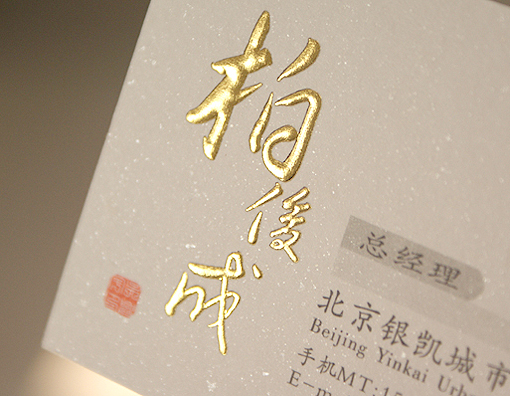 柏俊成
总经理
北京银凯城市
Beijing Yinkai Urb
手机MT:15
E-m